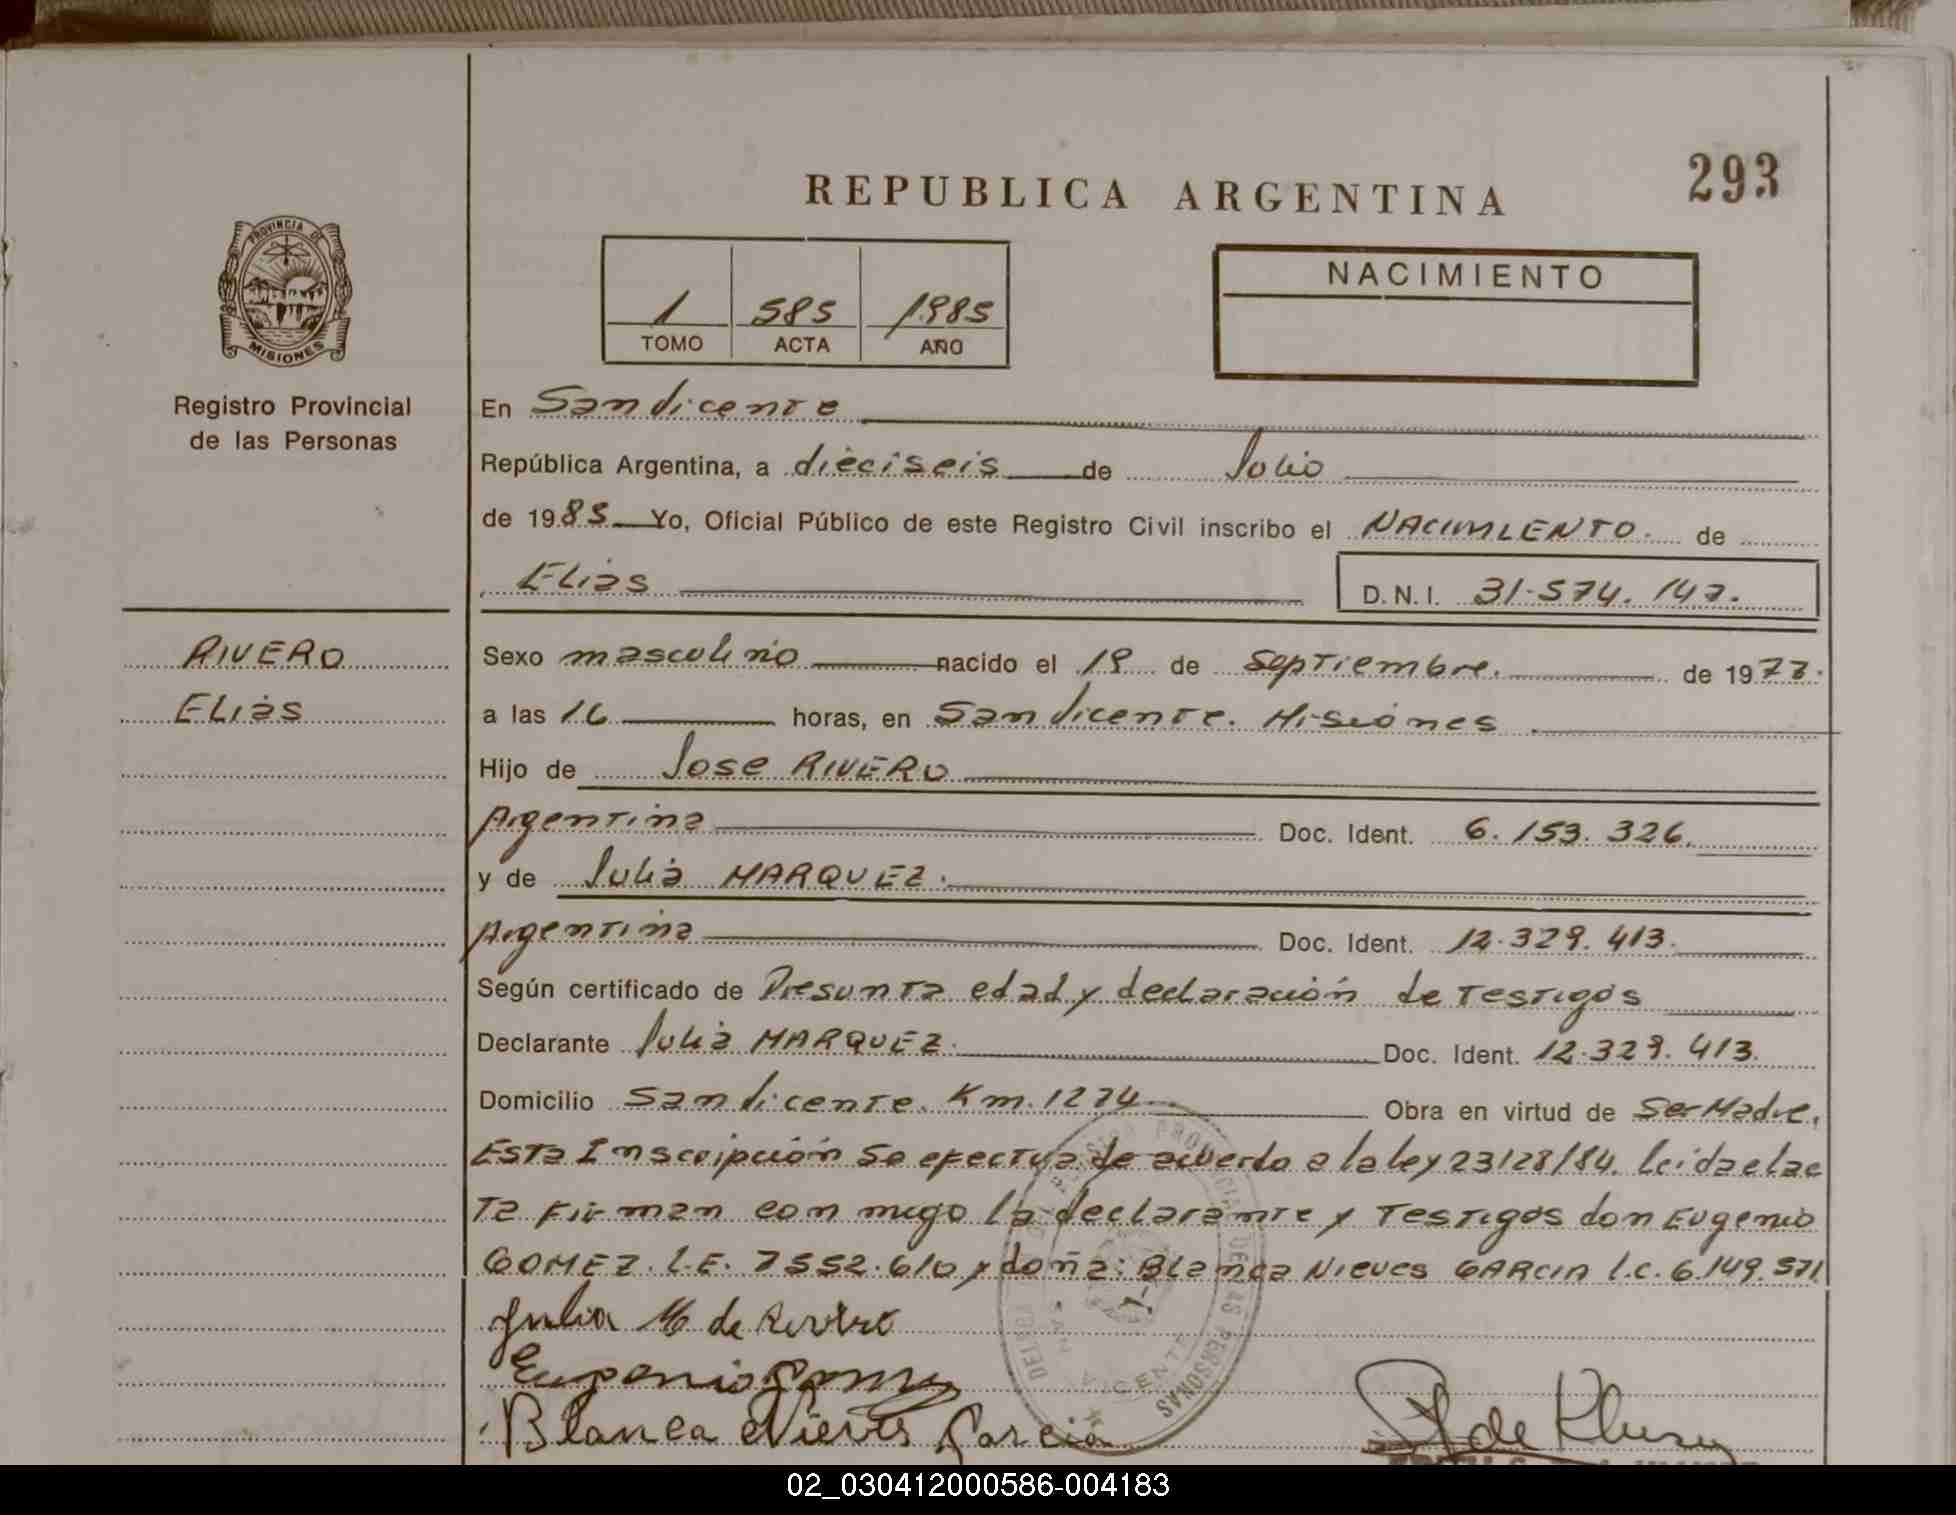 293
REPUBLICA ARGENTINA
PROVINCIA DE
MISIONES
Registro Provincial
de las Personas
1 585 1985
TOMO ACTA AÑO
NACIMIENTO
En San Vicente
República Argentina, a dieciseis de Julio
de 1985 Yo, Oficial Público de este Registro Civil inscribo el NACIMIENTO. de
Elias D.N.I. 31.574.147.
RIVERO
Elias
Sexo masculino nacido el 19 de Septiembre. de 1973.
a las 16 horas, en San Vicente. Misiones
Hijo de Jose RIVERO
Argentina Doc. Ident. 6.153.326.
y de Julia MARQUEZ.
Argentina Doc. Ident. 12.329.413.
Según certificado de Presunta edad y declaración de Testigos
Declarante Julia MARQUEZ. Doc. Ident. 12.329.413.
Domicilio San Vicente. Km. 1274. Obra en virtud de Ser Madre.
Esta Inscripción se efectua de acuerdo a la ley 23128/84. leida el ac
Ta firman con migo la declarante y Testigos don Eugenio
GOMEZ. L.E. 7552.610 y doña: Blanca Nieves GARCIA L.C. 6.149.571
Julia M de Rivero
Eugenio Gomez
Blanca Nieves Garcia
SAN VICENTE
02_030412000586-004183